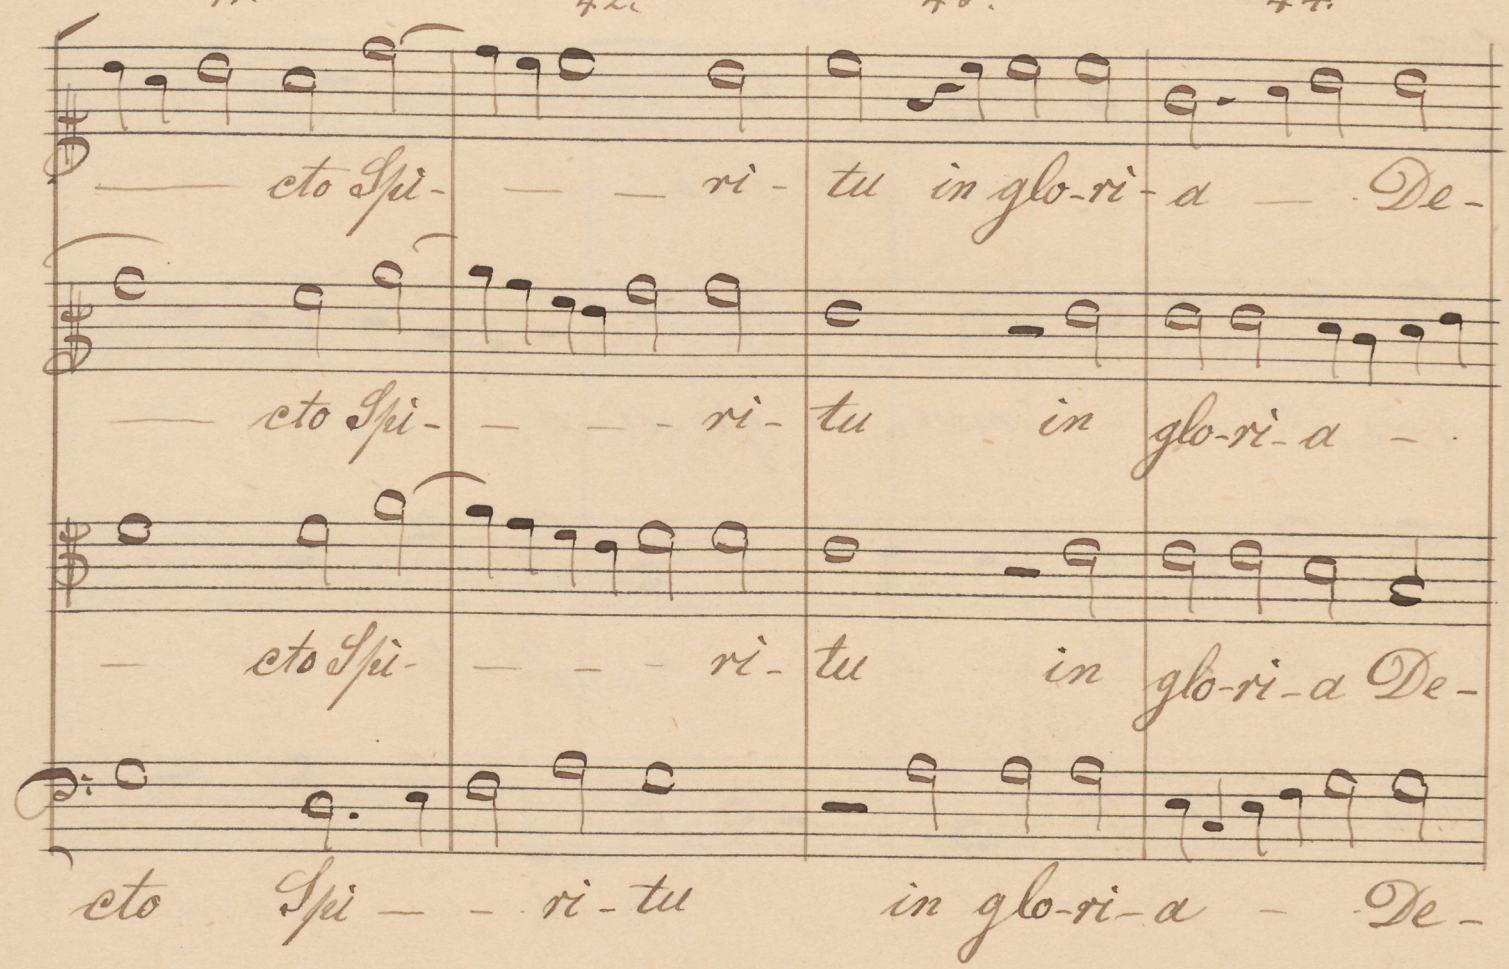 42.
44.
— cto Spi- — — ri- tu in glo-ri-a — . De-
— cto Spi- — — - ri- tu in glo-ri-a — .
— cto Spi- — — - ri- tu in glo-ri-a De-
cto Spi — - . ri-tu in glo-ri-a — . De-